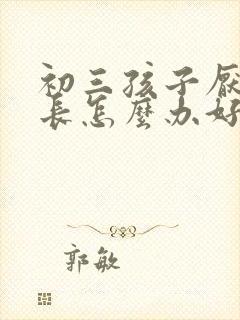 初三孩子厌
長怎麼办好
郭敏